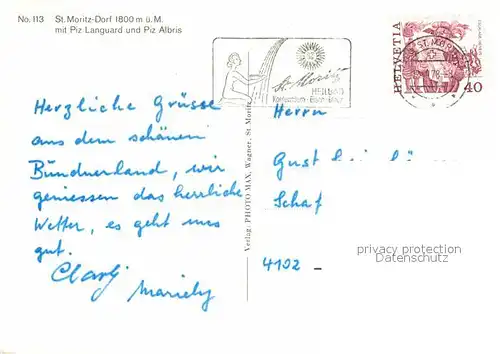 No. 113 St. Moritz-Dorf 1800 m ü. M.
mit Piz Languard und Piz Albris
St. Moritz
HEILBAD
HELVETIA
40
ST. MORITZ
Herzliche Grüsse
aus dem schönen
Bündnerland, wir
geniessen das herrliche
Wetter, es geht uns
gut.
Verlag: PHOTO MAX, Wagner, St. Moritz
Herrn
Gust
Schaf
4102
privacy protection
Datenschutz